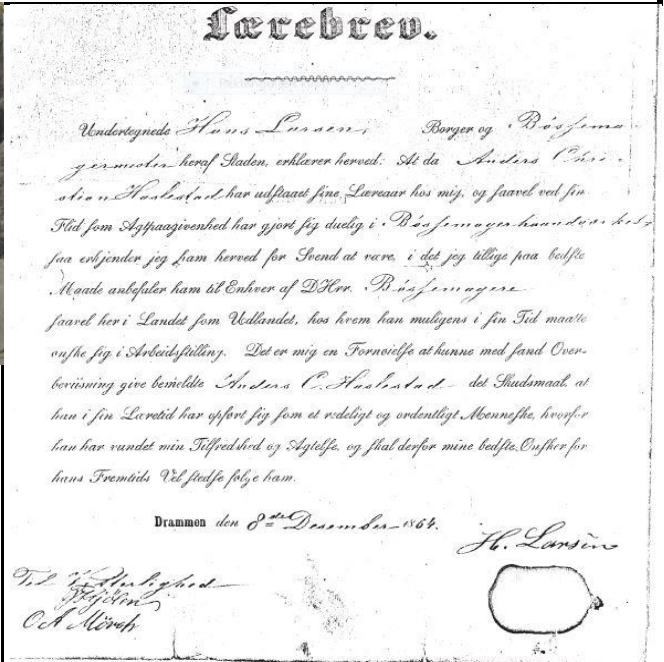 Lærebrev.
Undertegnede Hans Larsen, Borger og Bøssema-
germester heraf Staden, erklærer herved: At da Anders Chri-
stian Haslestad har udstaaet sine Læreaar hos mig, og saavel ved sin
Flid som Agtpaagivenhed har gjort sig duelig i Bøssemagerhaandværket,
saa erkjender jeg ham herved for Svend at være, i det jeg tillige paa bedste
Maade anbefaler ham til Enhver af DHrr. Bøssemagere
saavel her i Landet som Udlandet, hos hvem han muligens i sin Tid maatte
ønske sig i Arbeidsstilling. Det er mig en Fornøielse at kunne med sand Over-
beviisning give bemeldte Anders C. Haslestad det Skudsmaal, at
han i sin Læretid har opført sig som et redeligt og ordentligt Menneske, hvorfor
han har vundet min Tilfredshed og Agtelse, og skal derfor mine bedste Ønsker for
hans Fremtids Vel stedse følge ham.
Drammen den 8de Desember 1864.
H. Larsen
Til Vitterlighed
OA Mørch